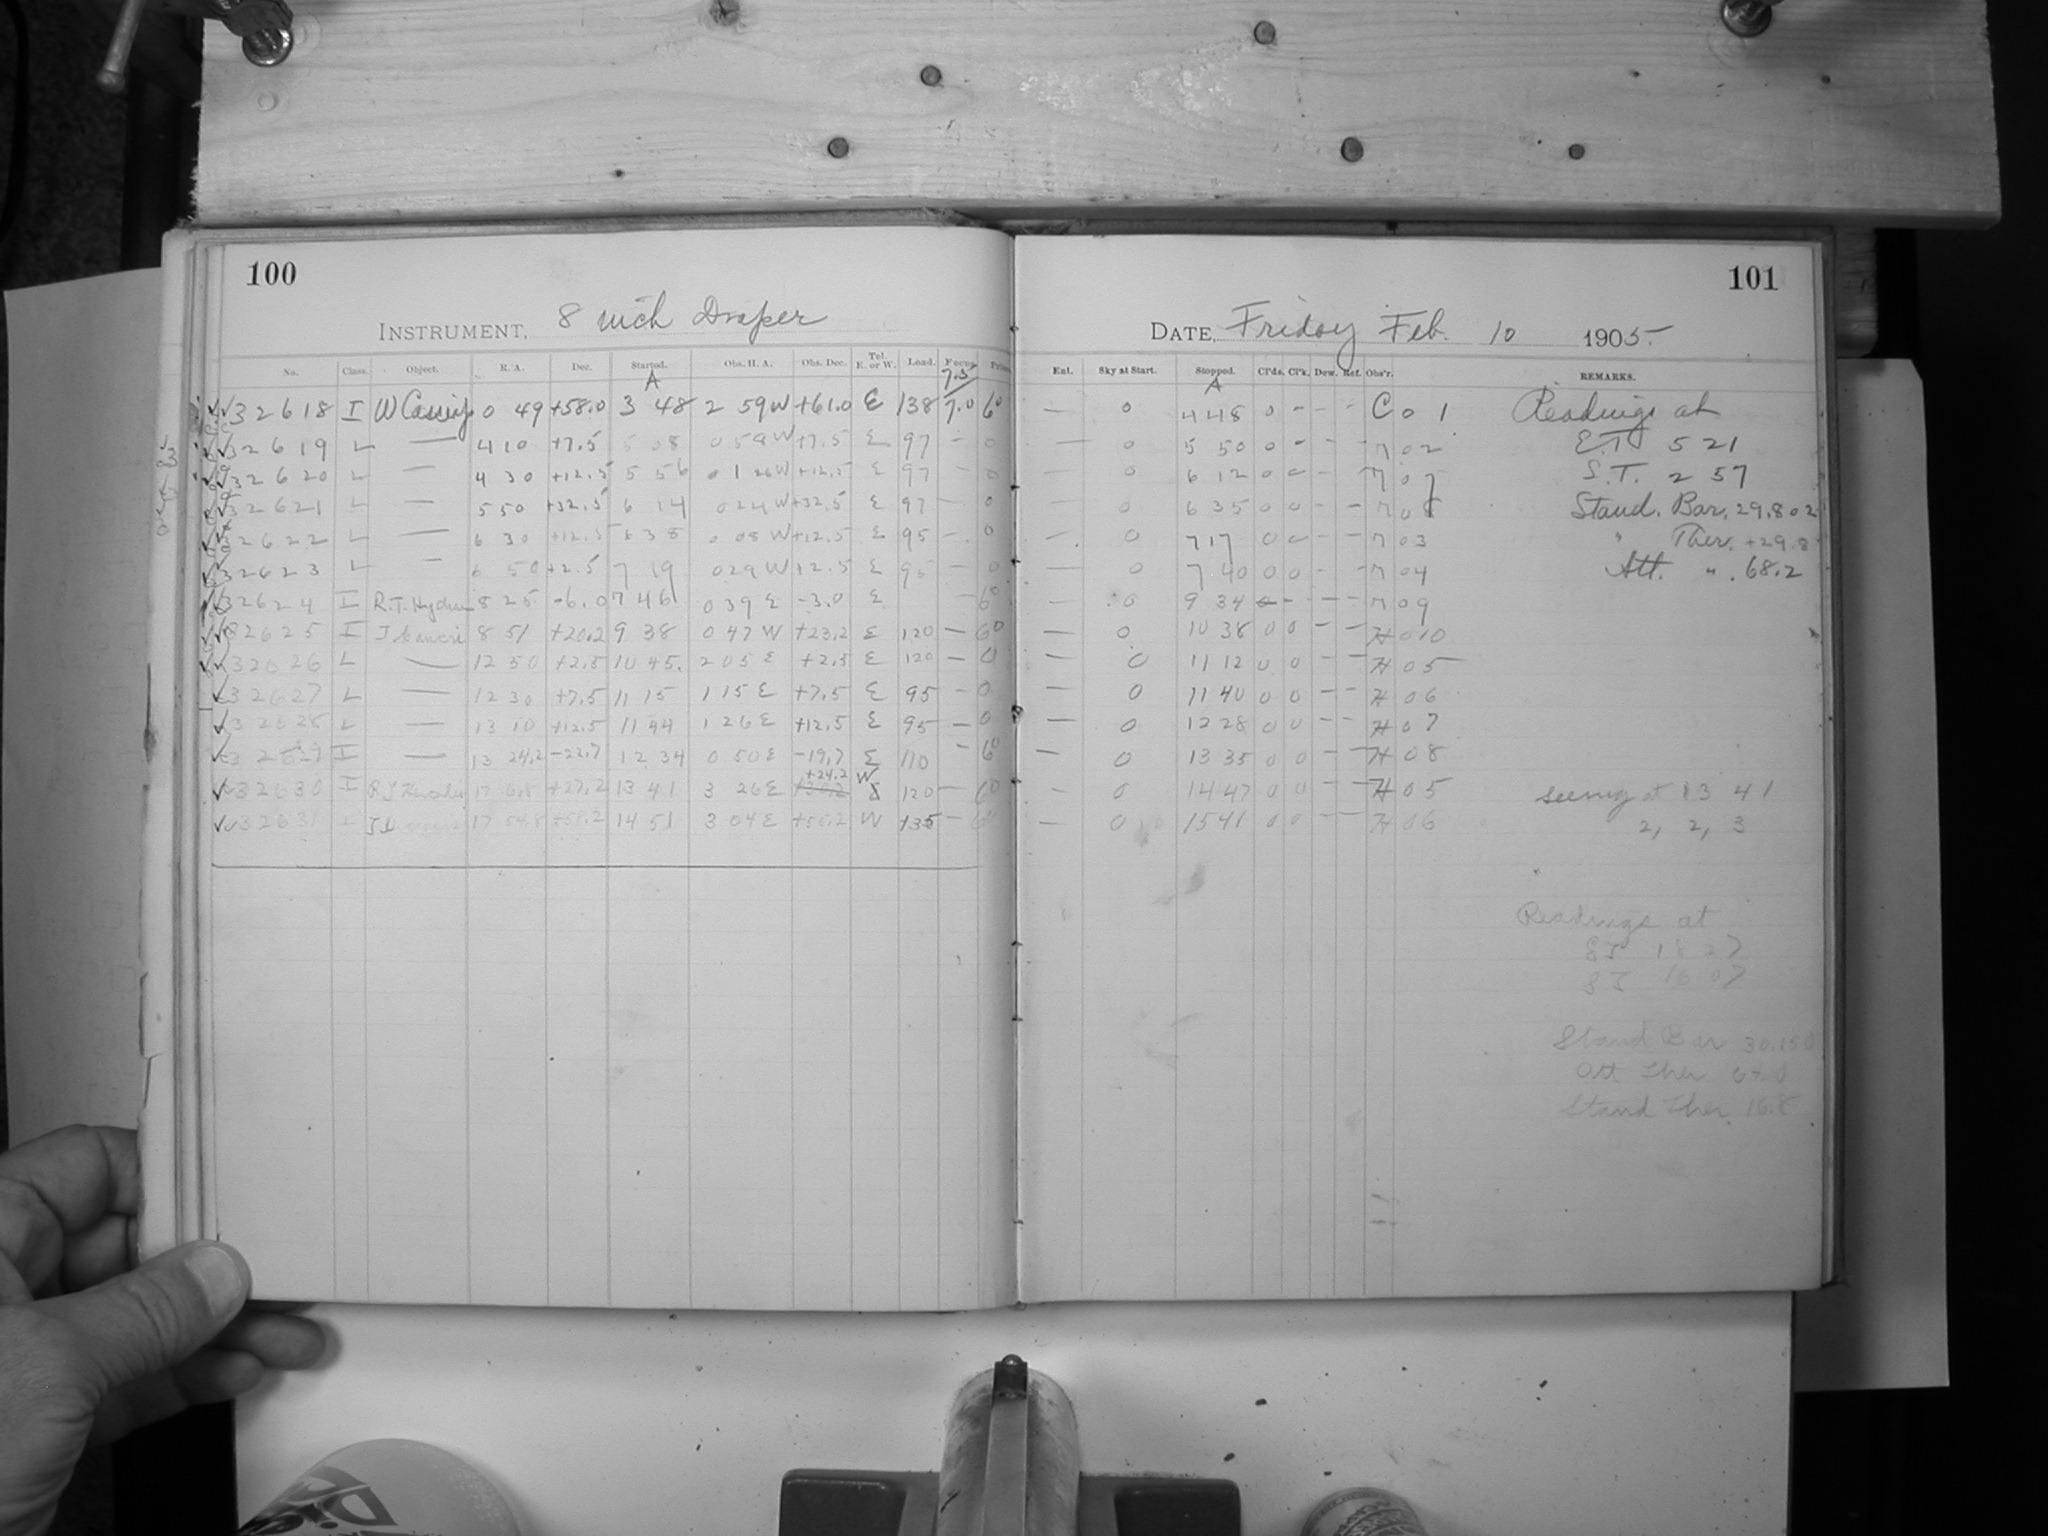 100
INSTRUMENT, 8 inch Draper
No. Class. Object. R. A. Dec. Started. Obs. H. A. Obs. Dec. Tel. E. or W. Lead. Focus
A 7.5
32618 I W Cassiop 0 49 +58.0 3 48 2 59 W +61.0 E 138 7.0 6°
32619 L — 4 10 +7.5 5 08 0 59 W +7.5 E 97 — 0
32620 L — 4 30 +12.5 5 56 0 1 26 W +12.5 E 97 — 0
32621 L — 5 50 +32.5 6 14 0 24 W +32.5 E 97 — 0
32622 L — 6 30 +12.5 6 38 0 08 W +12.5 E 95 — 0
32623 L — 6 50 +2.5 7 19 0 29 W +2.5 E 95 — 0
32624 I R.T. Hydrae 8 25 -6.0 7 46 0 39 E -3.0 E 6°
32625 I T Cancri 8 51 +20.2 9 38 0 47 W +23.2 E 120 — 6°
32626 L — 12 50 +2.5 10 45. 2 05 E +2.5 E 120 — 0
32627 L — 12 30 +7.5 11 15 1 15 E +7.5 E 95 — 0
32628 L — 13 10 +12.5 11 44 1 26 E +12.5 E 95 — 0
32629 I — 13 24.2 -22.7 12 34 0 50 E -19.7 E 110 — 6°
+24.2 W
32630 I 17 6.8 +27.2 13 41 3 26 E +30.2 E 120 — 6°
32631 I 14 51 3 04 E +55.2 W 135 — 6°
101
DATE, Friday Feb. 10 1905.
Ent. Sky at Start. Stopped. Cl'ds. Cl'k. Dew. Ref. Obs'r. REMARKS.
A
— 0 4 48 0 - - - C 0 1 Readings at
— 0 5 50 0 - - - M 02 E.T. 5 21
— 0 6 12 0 0 - - M 07 S.T. 2 57
— 0 6 35 0 0 - - M 08 Stand. Bar. 29.802
— 0 7 17 0 0 - - M 03 " Ther. +29.8
— 0 7 40 0 0 - - M 04 Att. " . 68.2
— 0 9 34 0 - - - M 09
— 0 10 38 0 0 - - H 0 10
— 0 11 12 0 0 - - H 05
— 0 11 40 0 0 - - H 06
— 0 12 28 0 0 - - H 07
— 0 13 35 0 0 - - H 08
— 0 14 47 0 0 - - H 05 Seeing at 13 41
— 0 15 41 0 0 - - H 06 2, 2, 3
Readings at
ET 18 27
ST 16 07
Stand Bar 30.150
Att Ther
Stand Ther 16.8